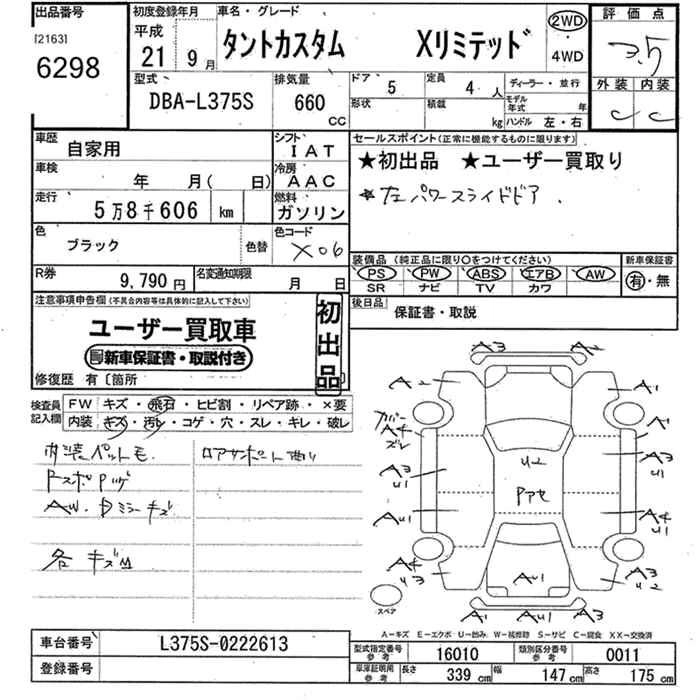 出品番号 初度登録年月 車名・グレード 評価点
[2163] 平成
6298 21 9月 タントカスタム Xリミテッド 2WD・4WD 3.5
型式 排気量 ドア 5 定員 4人 ディーラー・並行 外装 内装
DBA-L375S 660 CC 形状 積載 kg モデル年式 年 C C
ハンドル 左・右
車歴 自家用 シフト IAT セールスポイント(正常に機能するものに限ります)
車検 年 月( 日) 冷房 AAC ★初出品 ★ユーザー買取り
走行 5万8千606 km 燃料 ガソリン *左パワースライドドア.
色 ブラック 色替 色コード X06
装備品(純正品に限り○をつけてください) 新車保証書
R券 9,790円 名変通知期限 月 日 PS PW ABS エアB AW 有・無
SR ナビ TV カワ
注意事項申告欄(不具合内容等は具体的に記入して下さい) 後日品 保証書・取説
ユーザー買取車 初出品
新車保証書・取説付き
修復歴 有〔箇所 〕
検査員記入欄 FW キズ・飛石・ヒビ割・リペア跡・×要
内装 キズ・汚レ・コゲ・穴・スレ・キレ・破レ
内装ペットモ. ロアサポート曲り
AW. ミラーキズ
各キズ
A3 A2
A2 A1
カバー A4 ズレ A1
A3 U1 U2 A3 U1
Pアセ
AU1 A4 U1
A4 U3 AU1 A3 U2
A1 AU1 A3
スペア
A-キズ E-エクボ U-凹み W-補修跡 S-サビ C-腐食 XX-交換済
車台番号 L375S-0222613 型式指定番号 参考 16010 類別区分番号 参考 0011
登録番号 車庫証明用 参考 長さ 339cm 幅 147cm 高さ 175cm